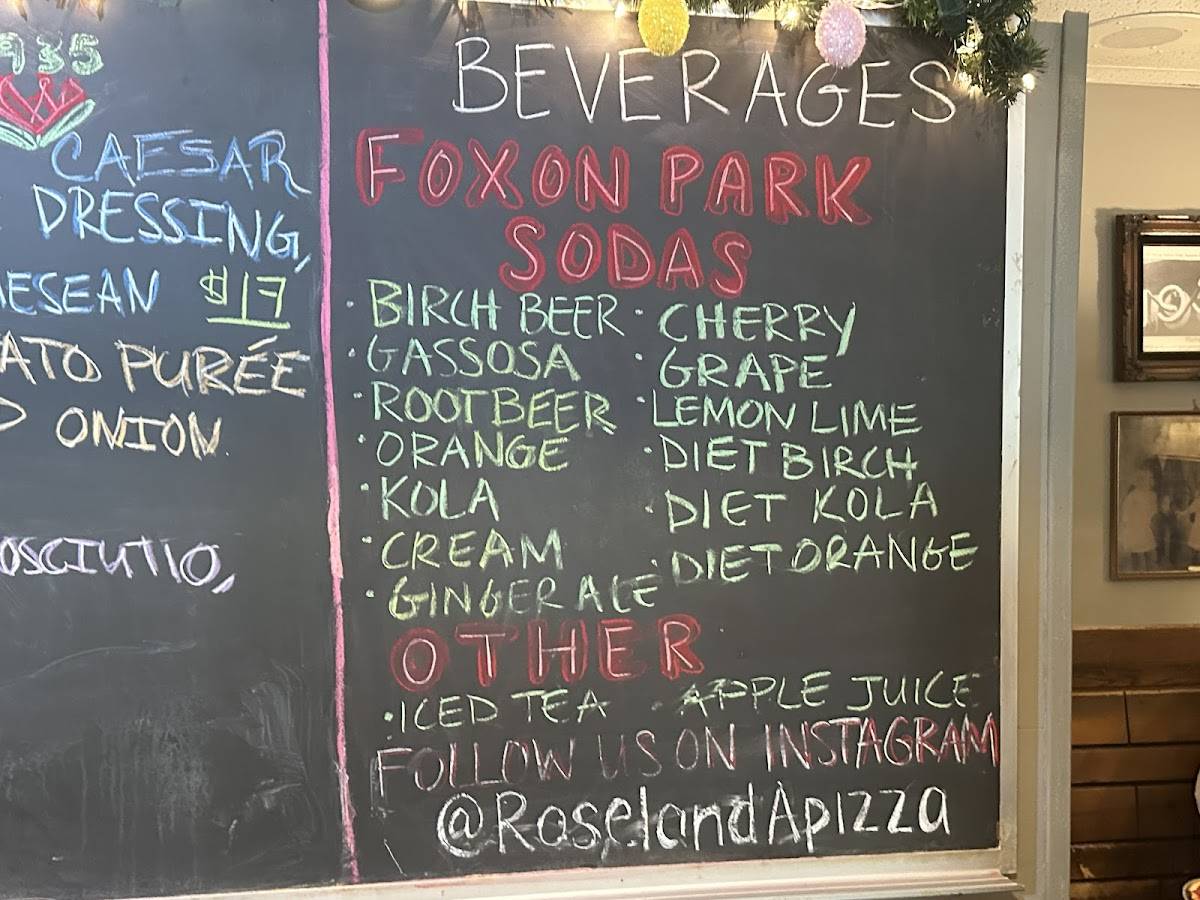 935
CAESAR
DRESSING,
ESEAN $17
ATO PURÉE
ONION
OSCIUTIO,
BEVERAGES
FOXON PARK
SODAS
· BIRCH BEER
· GASSOSA
· ROOT BEER
· ORANGE
· KOLA
· CREAM
· GINGER ALE
· CHERRY
· GRAPE
· LEMON LIME
· DIET BIRCH
· DIET KOLA
· DIET ORANGE
OTHER
· ICED TEA · APPLE JUICE
FOLLOW US ON INSTAGRAM
@RoselandApizza